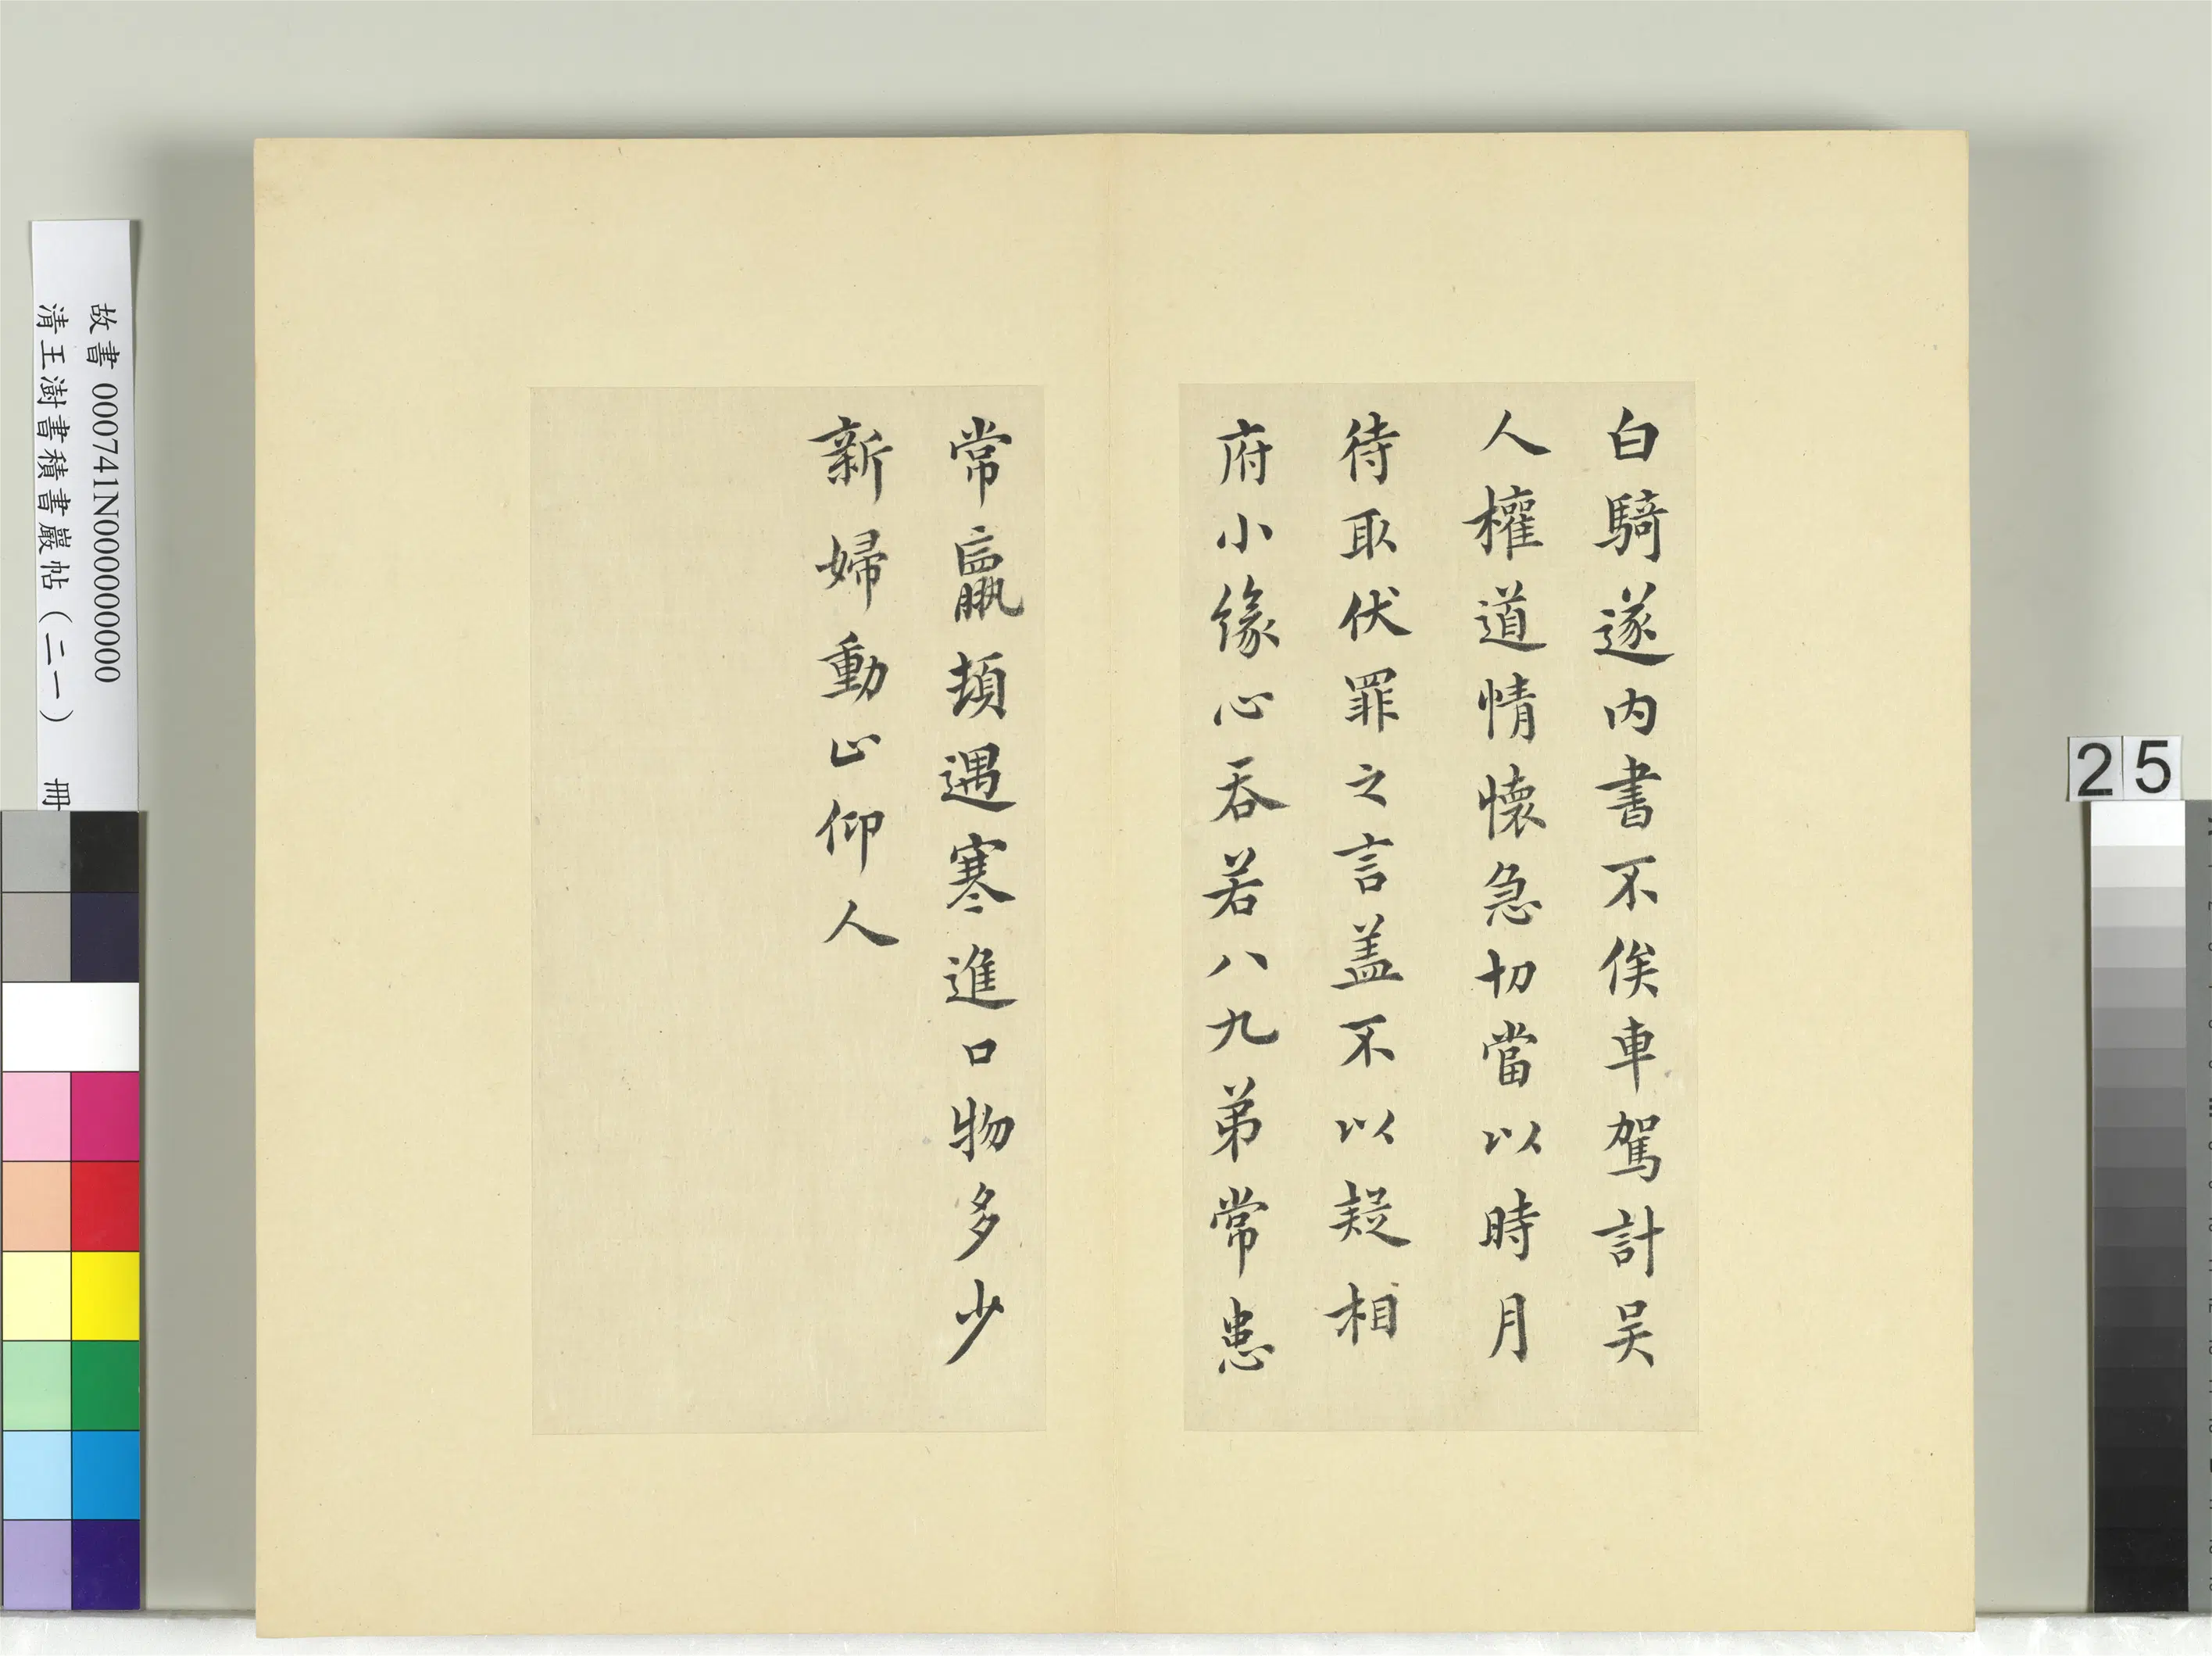 白騎遂內書不俟車駕計吴
人權道情懷急切當以時月
待取伏罪之言盖不以疑相
府小緣心吞若八九弟常患
常羸頓遇寒進口物多少
新婦動止仰人
故書 000741N000000000
清王澍書積書巖帖（二一） 冊
25